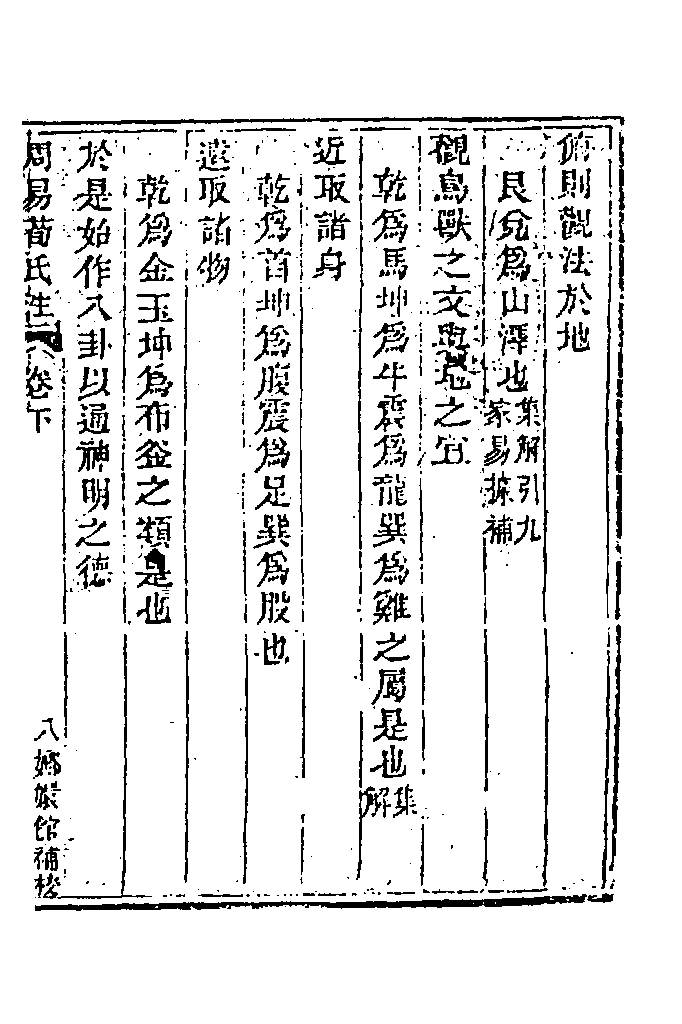 俯則觀法於地
艮兌爲山澤也集解引九家易探補
觀鳥獸之文與地之宜
乾爲馬坤爲牛震爲龍巽爲雞之屬是也集解
近取諸身
乾爲首坤爲腹震爲足巽爲股也
遠取諸物
乾爲金玉坤爲布釜之類是也
於是始作八卦以通神明之德
周易荀氏注 卷下
八 嫏嬛館補校